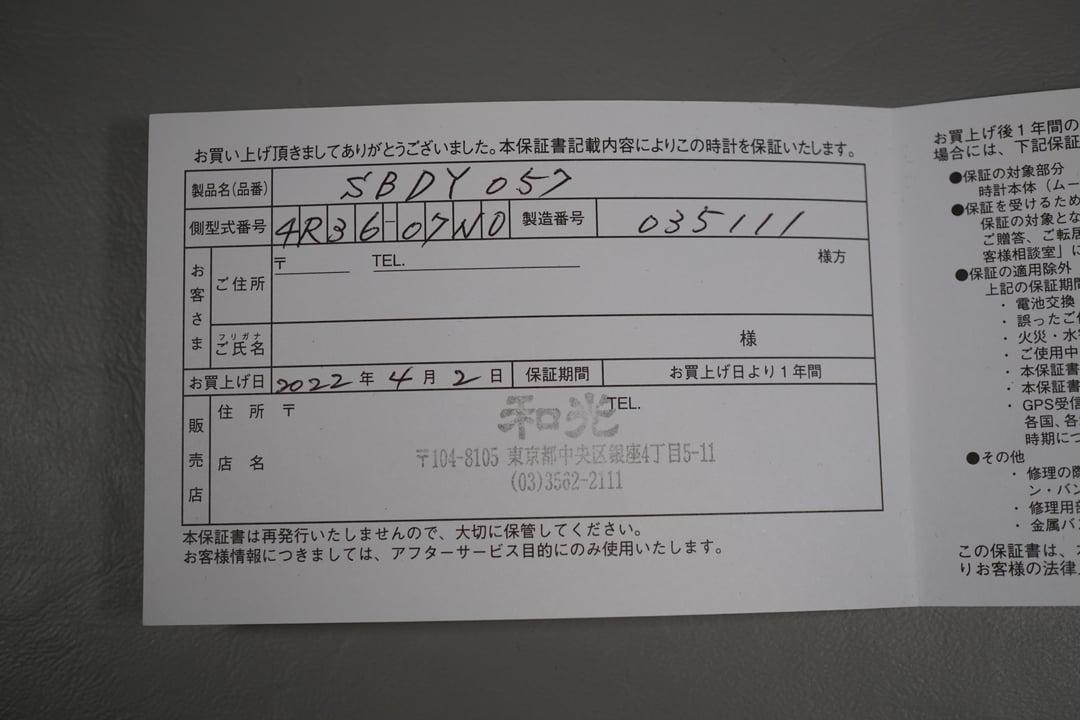 お買い上げ頂きましてありがとうございました。本保証書記載内容によりこの時計を保証いたします。
製品名(品番) SBDY057
側型式番号 4R36-07N0 製造番号 035111
お客さま
ご住所 〒 TEL. 様方
フリガナ
ご氏名 様
お買上げ日 2022年4月2日 保証期間 お買上げ日より1年間
販売店
住所 〒 TEL.
店名
和光
〒104-8105 東京都中央区銀座4丁目5-11
(03)3562-2111
本保証書は再発行いたしませんので、大切に保管してください。
お客様情報につきましては、アフターサービス目的にのみ使用いたします。
お買上げ後1年間の
場合には、下記保証
●保証の対象部分
時計本体(ムー
●保証を受けるため
保証の対象とな
ご贈答、ご転居
客様相談室」に
●保証の適用除外
上記の保証期間
・電池交換
・誤ったご使
・火災・水
・ご使用中
・本保証書
・本保証書
・GPS受信
各国、各
時期につ
●その他
・修理の際
ン・バン
・修理用部
・金属バ
この保証書は、本
りお客様の法律上